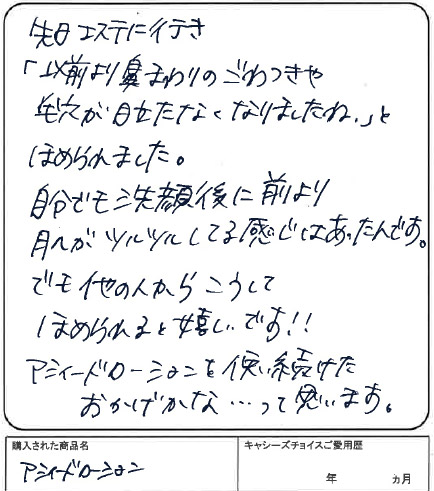 先日エステに行き
「以前より鼻まわりのごわつきや
毛穴が目立たなくなりましたね。」と
ほめられました。
自分でモ洗顔後に前より
肌がツルツルしてる感じはあったんです。
でモ他の人からこうして
ほめられると嬉しいです!!
アシィードローションを使い続けた
おかげかな…って思います。
購入された商品名
キャシーズチョイスご愛用歴
アシィードローション
年 ヵ月